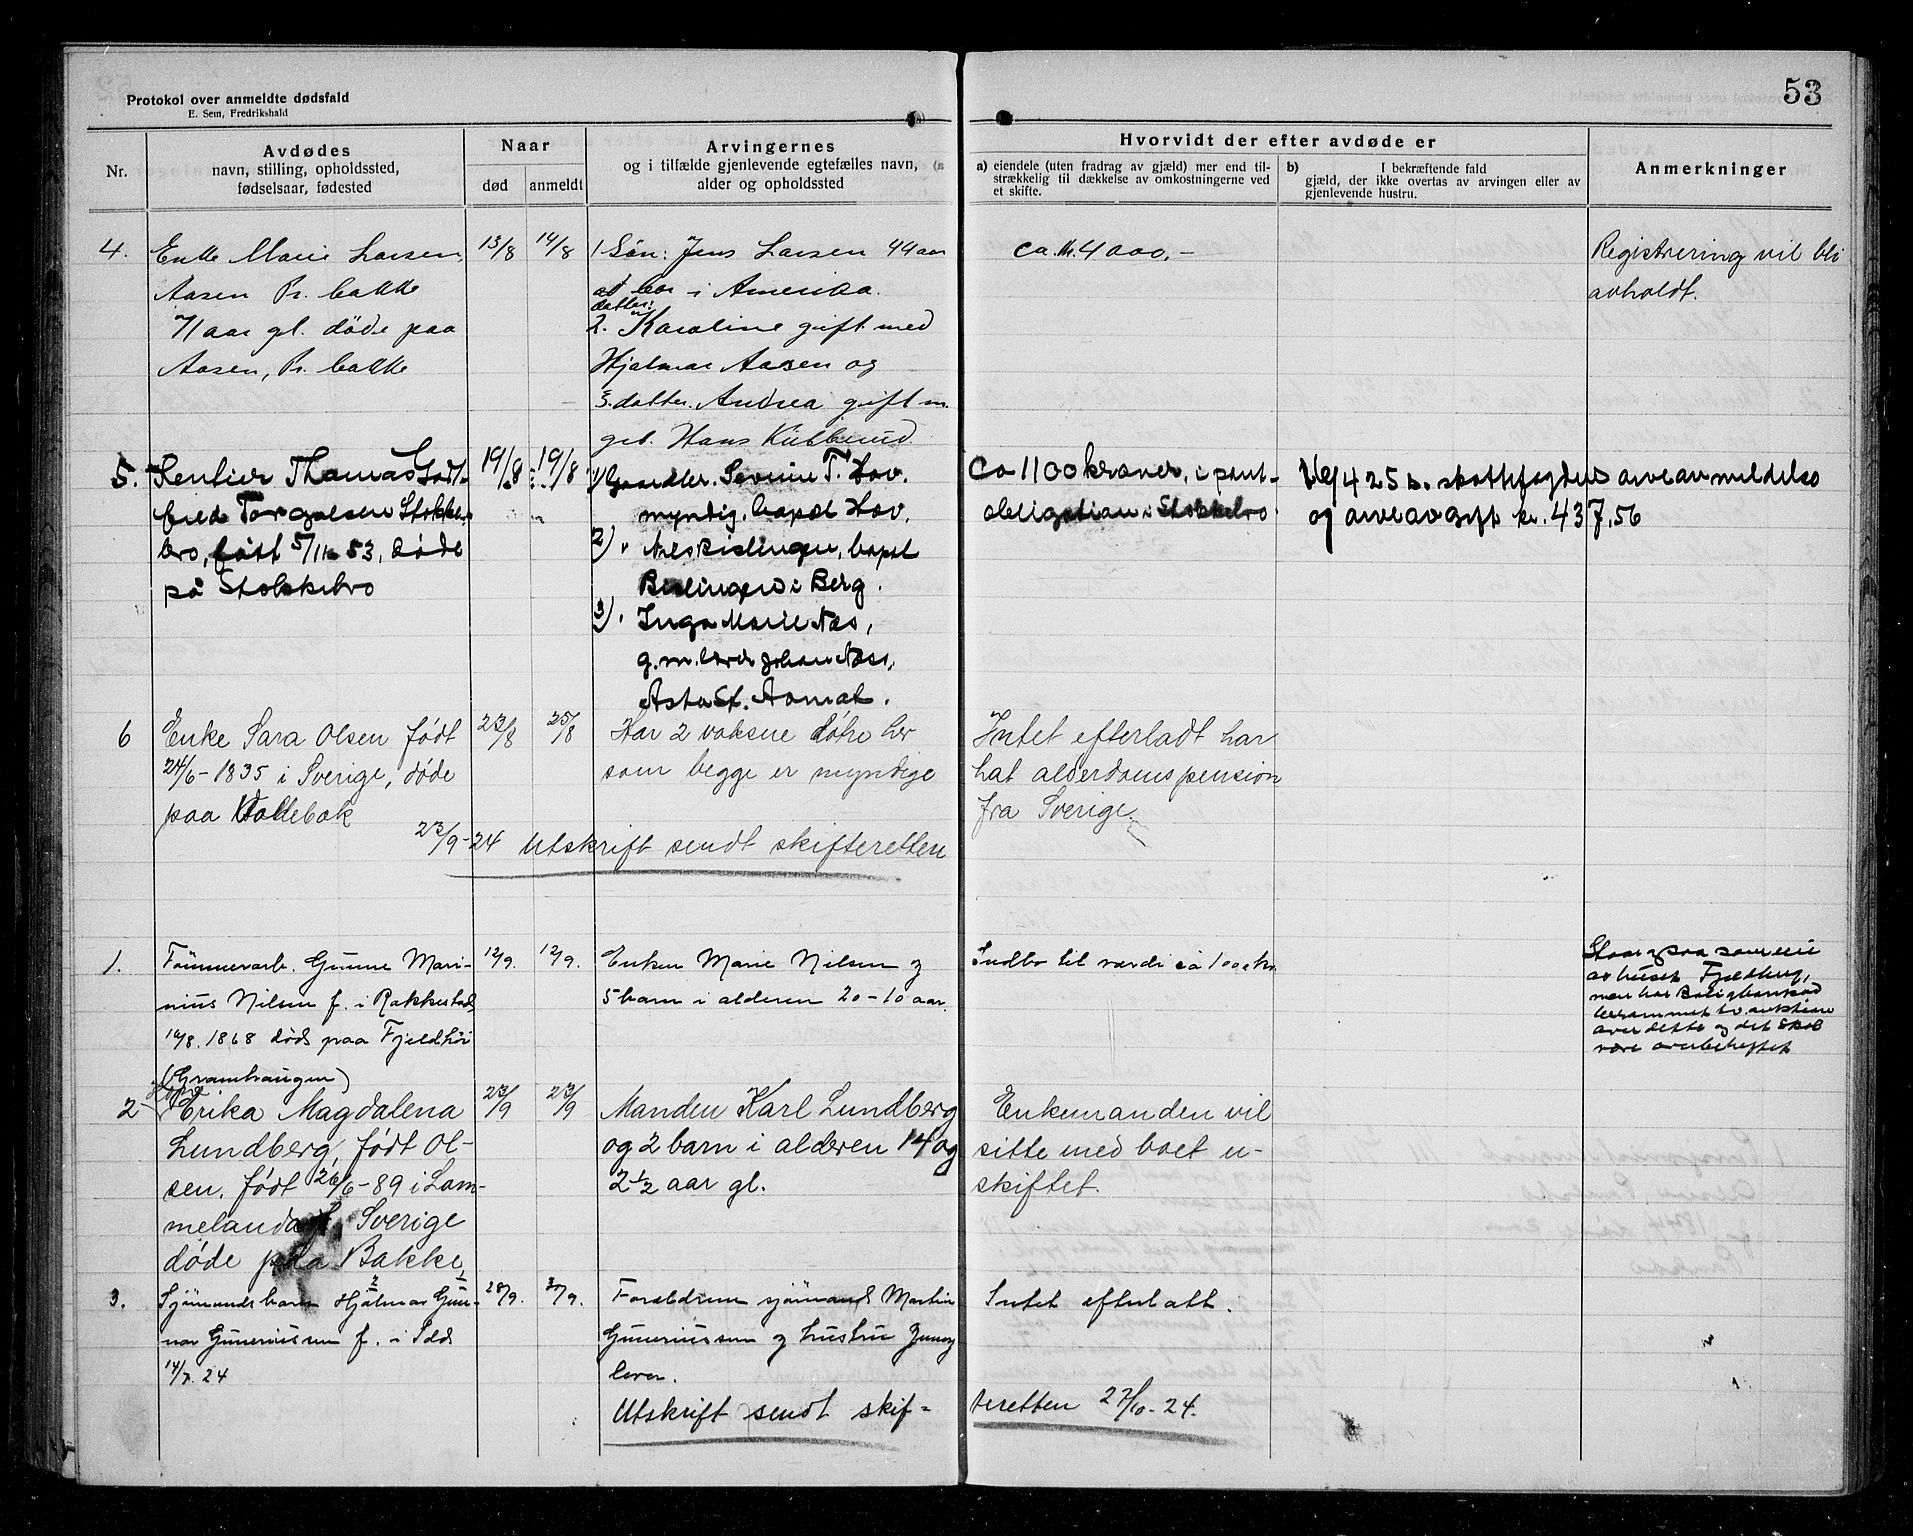 53
Protokol over anmeldte dødsfald
E. Sem, Fredrikshald
Nr.
Avdødes
navn, stilling, opholdssted,
fødselsaar, fødested
Naar
død
anmeldt
Arvingernes
og i tilfælde gjenlevende egtefælles navn,
alder og opholdssted
Hvorvidt der efter avdøde er
a) eiendele (uten fradrag av gjæld) mer end til-
strækkelig til dækkelse av omkostningerne ved
et skifte.
b) I bekræftende fald
gjæld, der ikke overtas av arvingen eller av
gjenlevende hustru.
Anmerkninger
4.
Enke Marie Larsen
Aasen Pr. bakke
71 aar gl. døde paa
Aasen, Pr. bakke
13/8
14/8
1 Søn: Jens Larsen 44 aar
bor i Amerika.
datter:
2. Karoline gift med
Hjalmar Aasen og
3. datter. Andrea gift m.
Hans
ca. kr. 4000,-
Registrering vil bli
avholdt.
5.
Rentier Thomas Godt-
fred Torgersen Stokke-
bro, født 5/11 53, døde
på Stokkebro
19/8
19/8
1) Severine T. Hov.
myndig, bopæl Hov.
2) " bopæl
i Berg.
3) " Inga Marie Næs,
g.m. Johan Næss,
Asta St. Aamot.
Ca 1100 kroner, i pant-
obligation i Stokkebro
Vg 425 s. skattefogdens arveanmeldelse
og arveavgift kr. 437,56
6
Enke Sara Olsen født
24/6-1835 i Sverige, døde
paa
23/8
25/8
Har 2 voksne døtre her
som begge er myndige
Intet efterladt har
hat alderdomspension
fra Sverige.
23/9-24 Utskrift sendt skifteretten
1.
Tømmerarb. Gunne Mari-
nius Nilsen f. i Rakkestad
1868 død paa Fjeldhøi
(Gramhaugen)
12/9.
12/9.
Enken Marie Nilsen og
5 barn i alderen 20-10 aar.
Indbo til værdi ca 1000 kr.
Staar opaa som eie
av huset
men har
over dette og det skal
være overbeheftet
2
Erika Magdalena
Lundberg, født Ol-
sen. født 26/6-89 i Lom-
melanda, Sverige
døde paa Bakke
23/9
23/9
Manden Karl Lundberg
og 2 barn i alderen 14 og
2 1/2 aar gl.
Enkemanden vil
sitte med boet u-
skiftet.
3.
Sjømandsbarn Hjalmar Gun-
nar Guneriussen f. i Idd
14/7. 24
28/9.
30/9.
Forældrene sjømand Martin
Guneriussen og hustru
lever.
Intet efterlatt.
Utskrift sendt skif-
teretten 27/10-24.